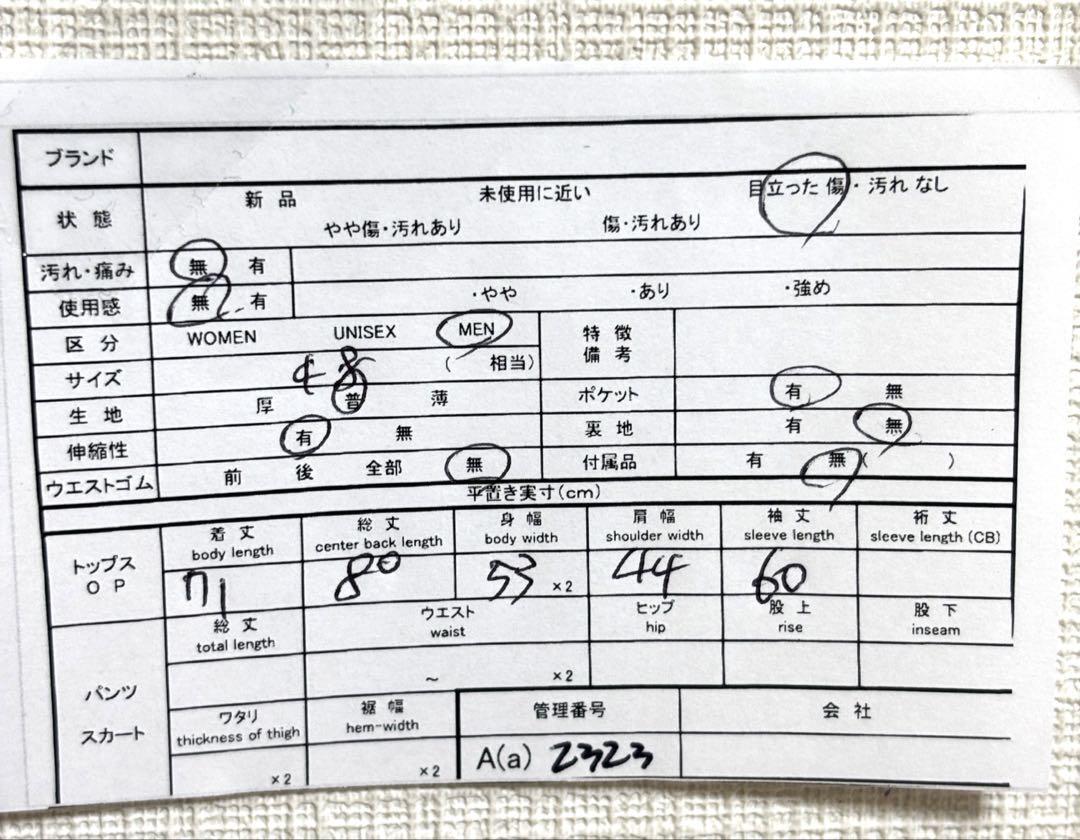 ブランド
状態 新品 未使用に近い 目立った傷・汚れなし
やや傷・汚れあり 傷・汚れあり
汚れ・痛み 無 有
使用感 無 有 ・やや ・あり ・強め
区分 WOMEN UNISEX MEN 特徴
備考
サイズ 48 ( 相当)
生地 厚 普 薄 ポケット 有 無
伸縮性 有 無 裏地 有 無
ウエストゴム 前 後 全部 無 付属品 有 無 ( )
平置き実寸(cm)
トップス
OP
着丈 総丈 身幅 肩幅 袖丈 裄丈
body length center back length body width shoulder width sleeve length sleeve length (CB)
71 80 53 ×2 44 60
パンツ
スカート
総丈 ウエスト ヒップ 股上 股下
total length waist hip rise inseam
~ ×2
ワタリ 裾幅 管理番号 会社
thickness of thigh hem-width
×2 ×2 A(a) 2323